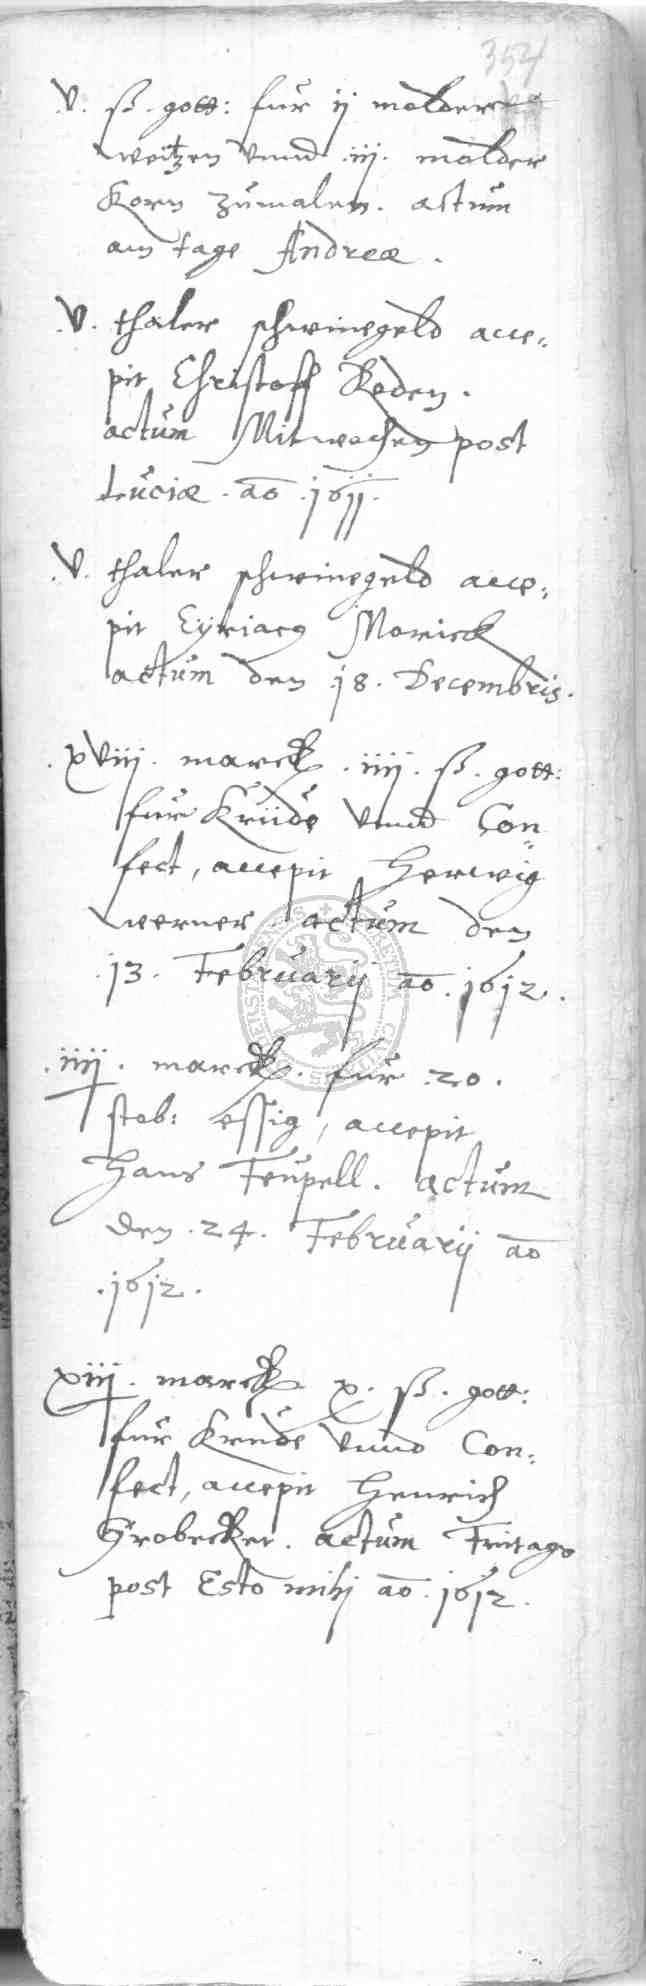 354
.v. ß. gott: fur ij molder
weitzen vnnd .iij. molder
Korn zumalen. actum
am tage Andreæ.
.v. thaler schweinegeld acce=
pit Christoff Roden.
actum Mitwochen post
Luciæ. ao .1611.
.v. thaler schweinegeld acce=
pit Cyriacq Morick
actum den .18. Decembris.
.xviij. marck .iiij. ß. gott:
fur Krude vnnd Con=
fect, accepit Herwig
werner. actum den
.13. Februarij ao. 1612.
.iiij. marck. fur .20.
stob: essig, accepit
Hans Teupell. actum
den .24. Februarij ao
.1612.
xiij. marck x. ß. gott:
fur Krude vnnd Con=
fect, accepit Henrich
Grobecker. actum Freitags
post Esto mihi ao .1612.